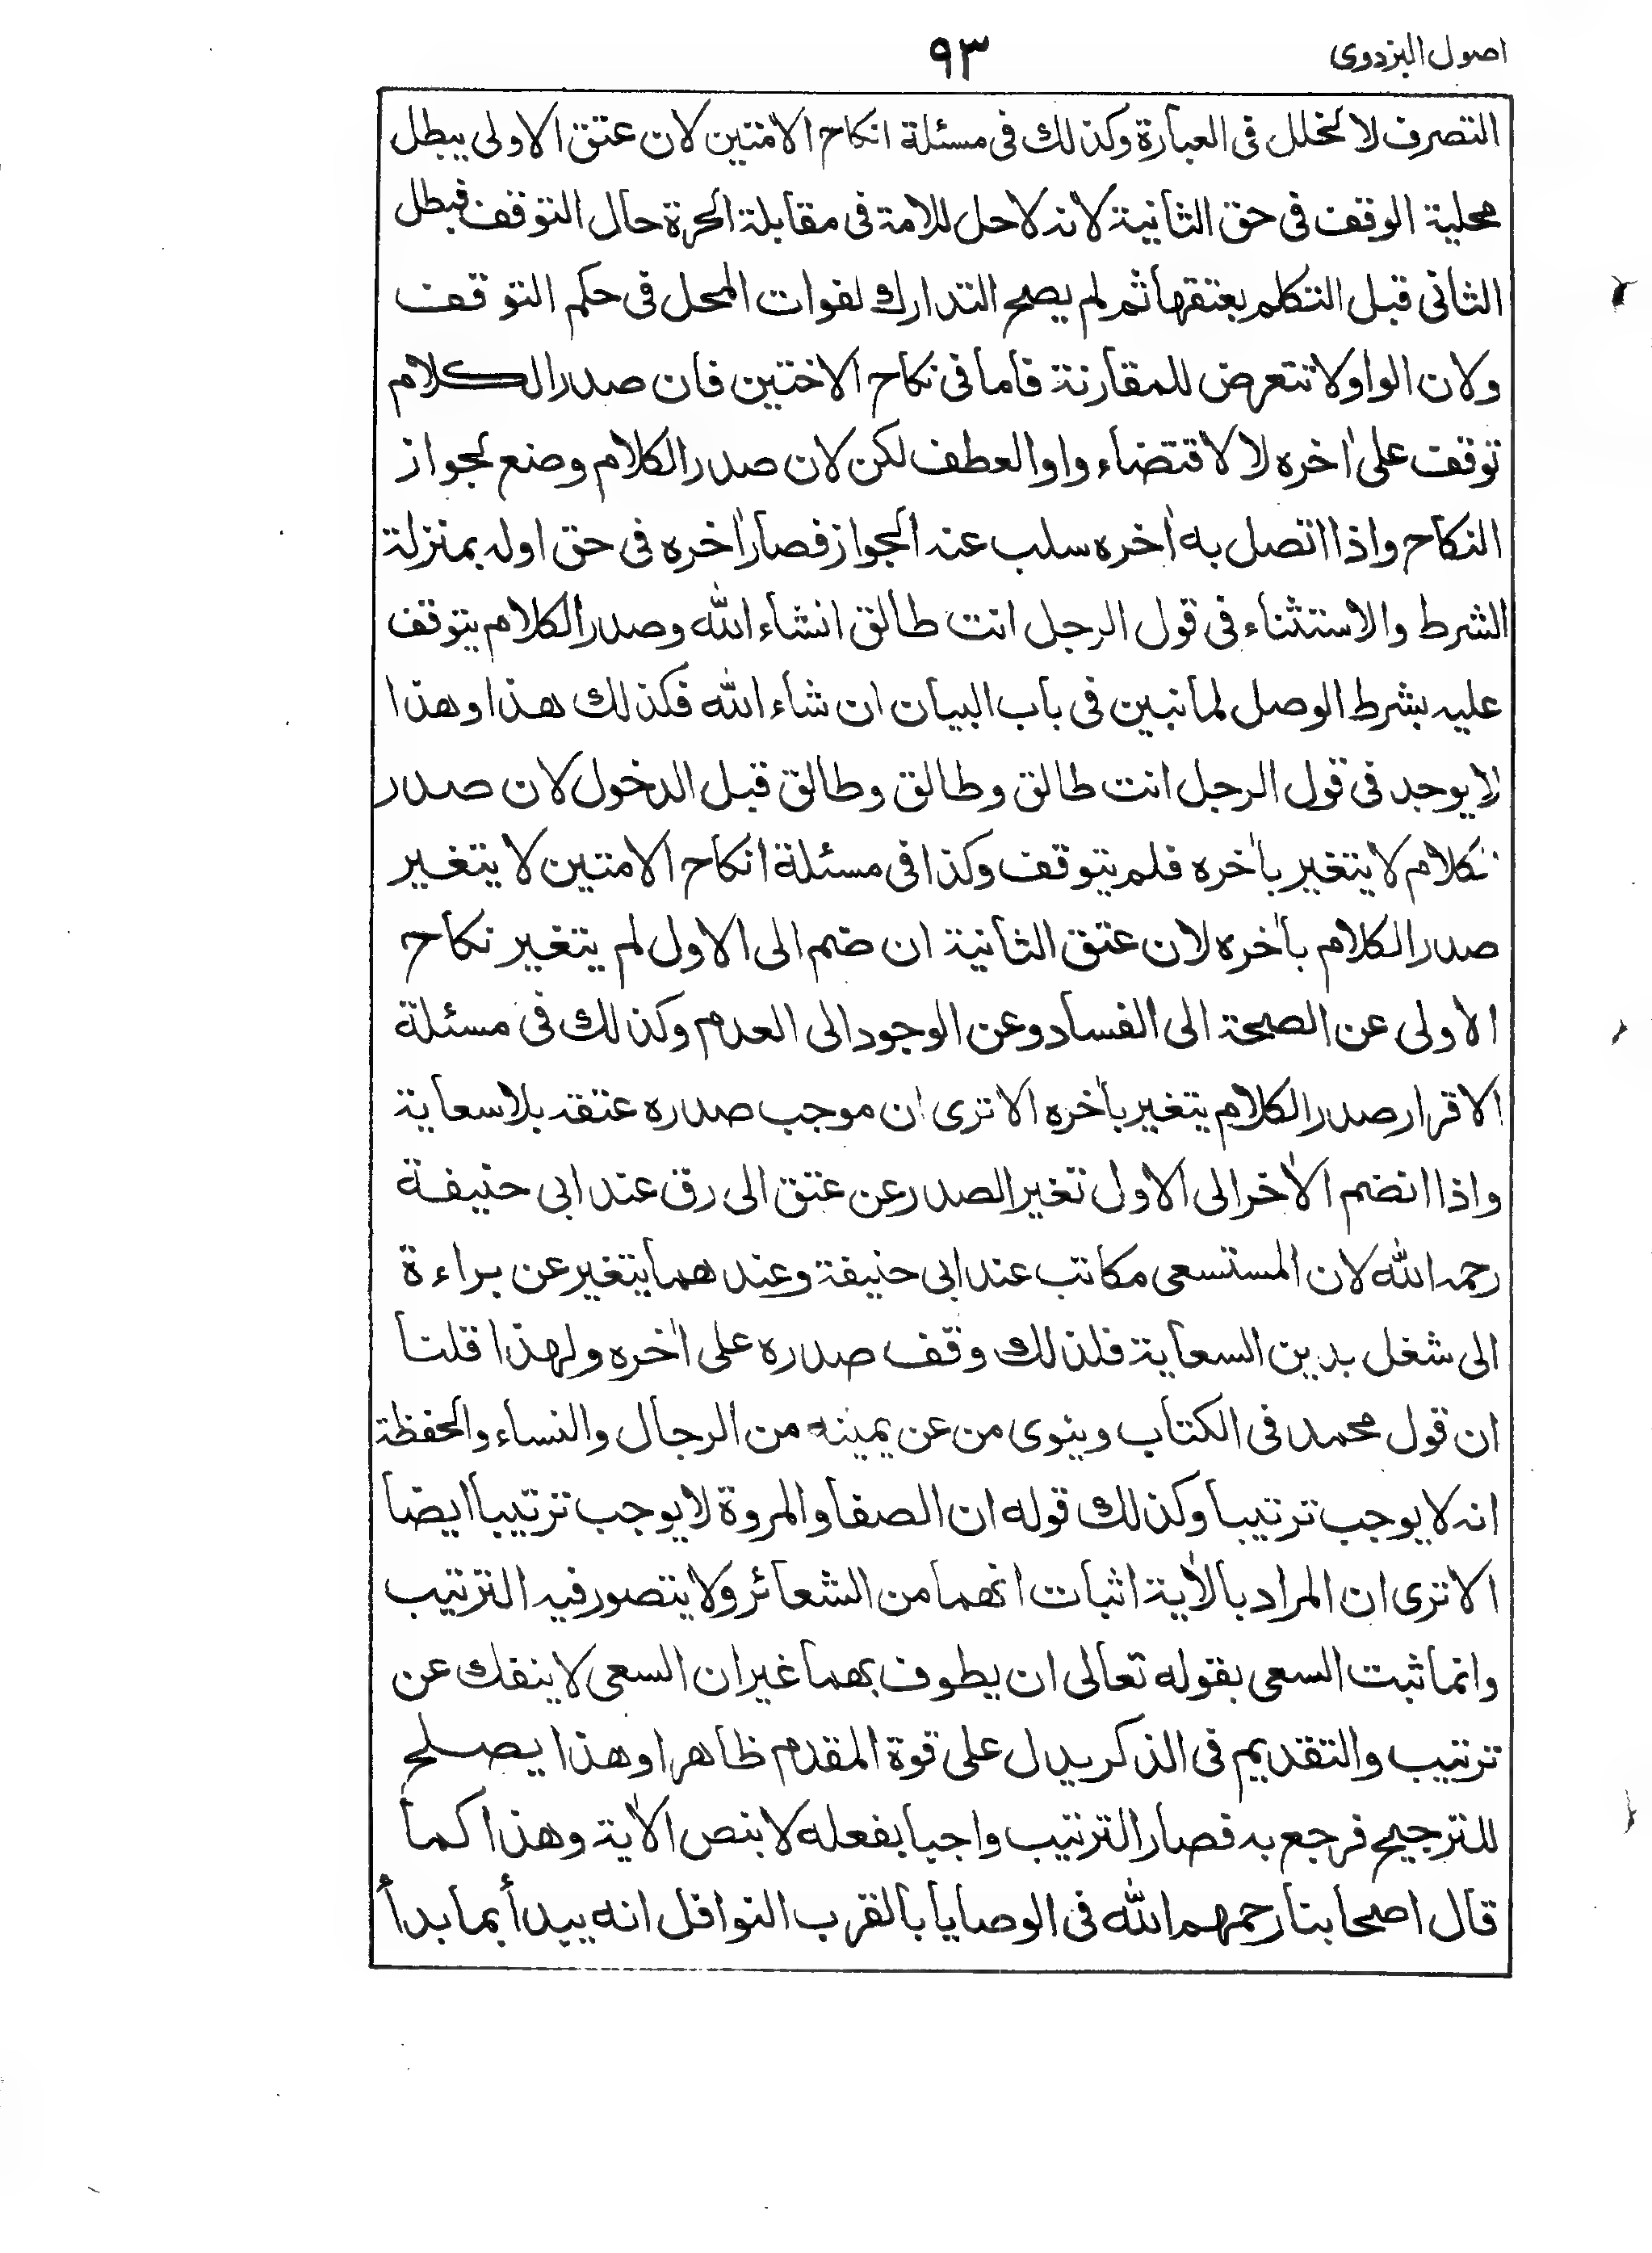 اصول البزدوى
٩٣
التصرف لا لخلل فى العبارة وكذلك فى مسئلة انكاح الامتين لان عتق الاولى يبطل
محلية الوقف فى حق الثانية لانه لا حل للامة فى مقابلة الحرة حال التوقف فبطل
الثانى قبل التكلم بعتقها ثم لم يصح التدارك لفوات المحل فى حكم التوقف
ولان الواو لا تتعرض للمقارنة فاما فى نكاح الاختين فان صدر الكلام
توقف على اٰخره لا لاقتضاء واو العطف لكن لان صدر الكلام وضع لجواز
النكاح واذا اتصل به اٰخره سلب عنه الجواز فصار اٰخره فى حق اوله بمنزلة
الشرط والاستثناء فى قول الرجل انت طالق انشاء الله وصدر الكلام يتوقف
عليه بشرط الوصل لما نبين فى باب البيان ان شاء الله فكذلك هذا وهذا
لا يوجد فى قول الرجل انت طالق وطالق وطالق قبل الدخول لان صدر
الكلام لا يتغير باٰخره فلم يتوقف وكذا فى مسئلة انكاح الامتين لا يتغير
صدر الكلام باٰخره لان عتق الثانية ان ضم الى الاول لم يتغير نكاح
الاولى عن الصحة الى الفساد وعن الوجود الى العدم وكذلك فى مسئلة
الاقرار صدر الكلام يتغير باٰخره الا ترى ان موجب صدره عتقه بلا سعاية
واذا انضم الاٰخر الى الاول تغير الصدر عن عتق الى رق عند ابى حنيفة
رحمه الله لان المستسعى مكاتب عند ابى حنيفة وعندهما يتغير عن براءة
الى شغل بدين السعاية فلذلك وقف صدره على اٰخره ولهذا قلنا
ان قول محمد فى الكتاب وينوى من عن يمينه من الرجال والنساء والحفظة
انه لا يوجب ترتيبا وكذلك قوله ان الصفا والمروة لا يوجب ترتيبا ايضا
الا ترى ان المراد بالاٰية اثبات انهما من الشعائر ولا يتصور فيه الترتيب
وانما ثبت السعى بقوله تعالى ان يطوف بهما غير ان السعى لا ينفك عن
ترتيب والتقديم فى الذكر يدل على قوة المقدم ظاهرا وهذا يصلح
للترجيح فرجع به فصار الترتيب واجبا بفعله لا بنص الاٰية وهذا كما
قال اصحابنا رحمهم الله فى الوصايا بالقرب النوافل انه يبدأ بما بدأ